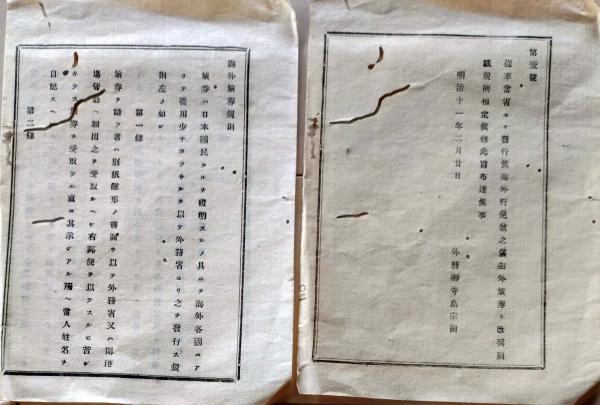 第壹號
從來當省ヨリ發行候海外行免狀之儀海外旅券ト改稱別
紙規則相定候條此旨布達候事
明治十一年二月廿日
外務卿寺島宗則
海外旅券規則
旅券ハ日本國民タルヲ證明スルノ具ニシテ海外各國ニア
リテ要用少ナカラサルヲ以テ外務省ヨリ之ヲ發行ス規
則左ノ如シ
第一條
旅券ヲ請フ者ハ別紙雛形ノ書面ヲ以テ外務省又ハ開港
場管廳ヘ願出之ヲ受取ルヘシ有郵便ヲ以テスルモ苦シ
カラス旅券ヲ受取ラハ直ニ其示シアル所ヘ當人姓名ヲ
自記スヘシ
第二條